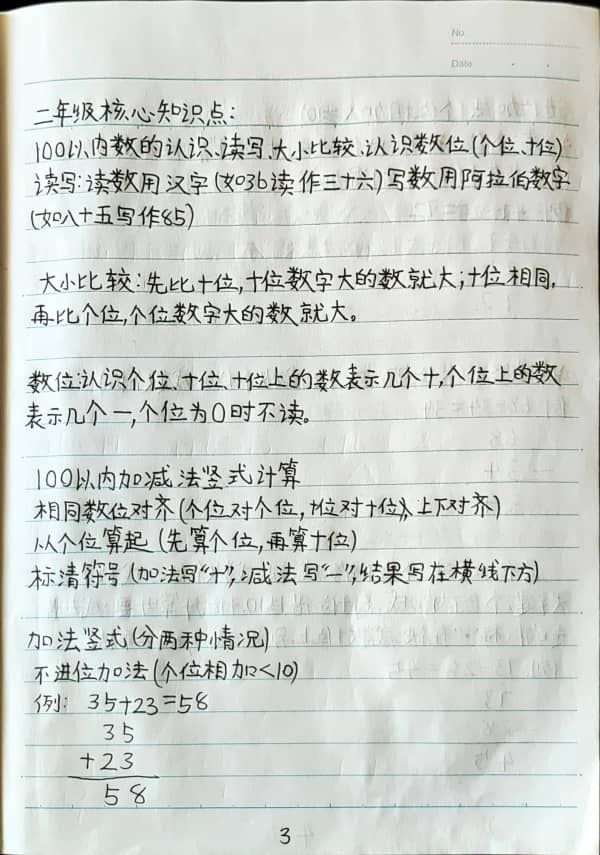 No
Date
二年级核心知识点:
100以内数的认识、读写、大小比较、认识数位(个位、十位)
读写:读数用汉字(如36读作三十六)写数用阿拉伯数字
(如八十五写作85)
大小比较:先比十位,十位数字大的数就大;十位相同,
再比个位,个位数字大的数就大。
数位:认识个位、十位、十位上的数表示几个十,个位上的数
表示几个一,个位为0时不读。
100以内加减法竖式计算
相同数位对齐(个位对个位,十位对十位)、上下对齐)
从个位算起(先算个位,再算十位)
标清符号(加法写“+”,减法写“-”,结果写在横线下方)
加法竖式(分两种情况)
不进位加法(个位相加<10)
例: 35+23=58
35
+23
58
3